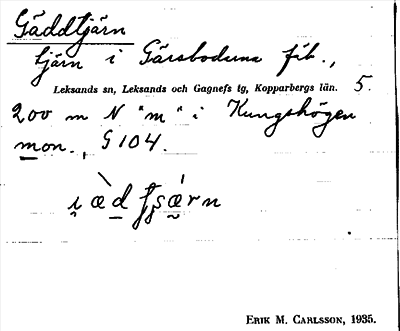 Gäddtjärn
tjärn i Gärsbodarna fäb.,
Leksands sn, Leksands och Gagnefs tg, Kopparbergs län. 5.
200 m N "m" i Kungshögen
mon., G 104.
ERIK M. CARLSSON, 1935.